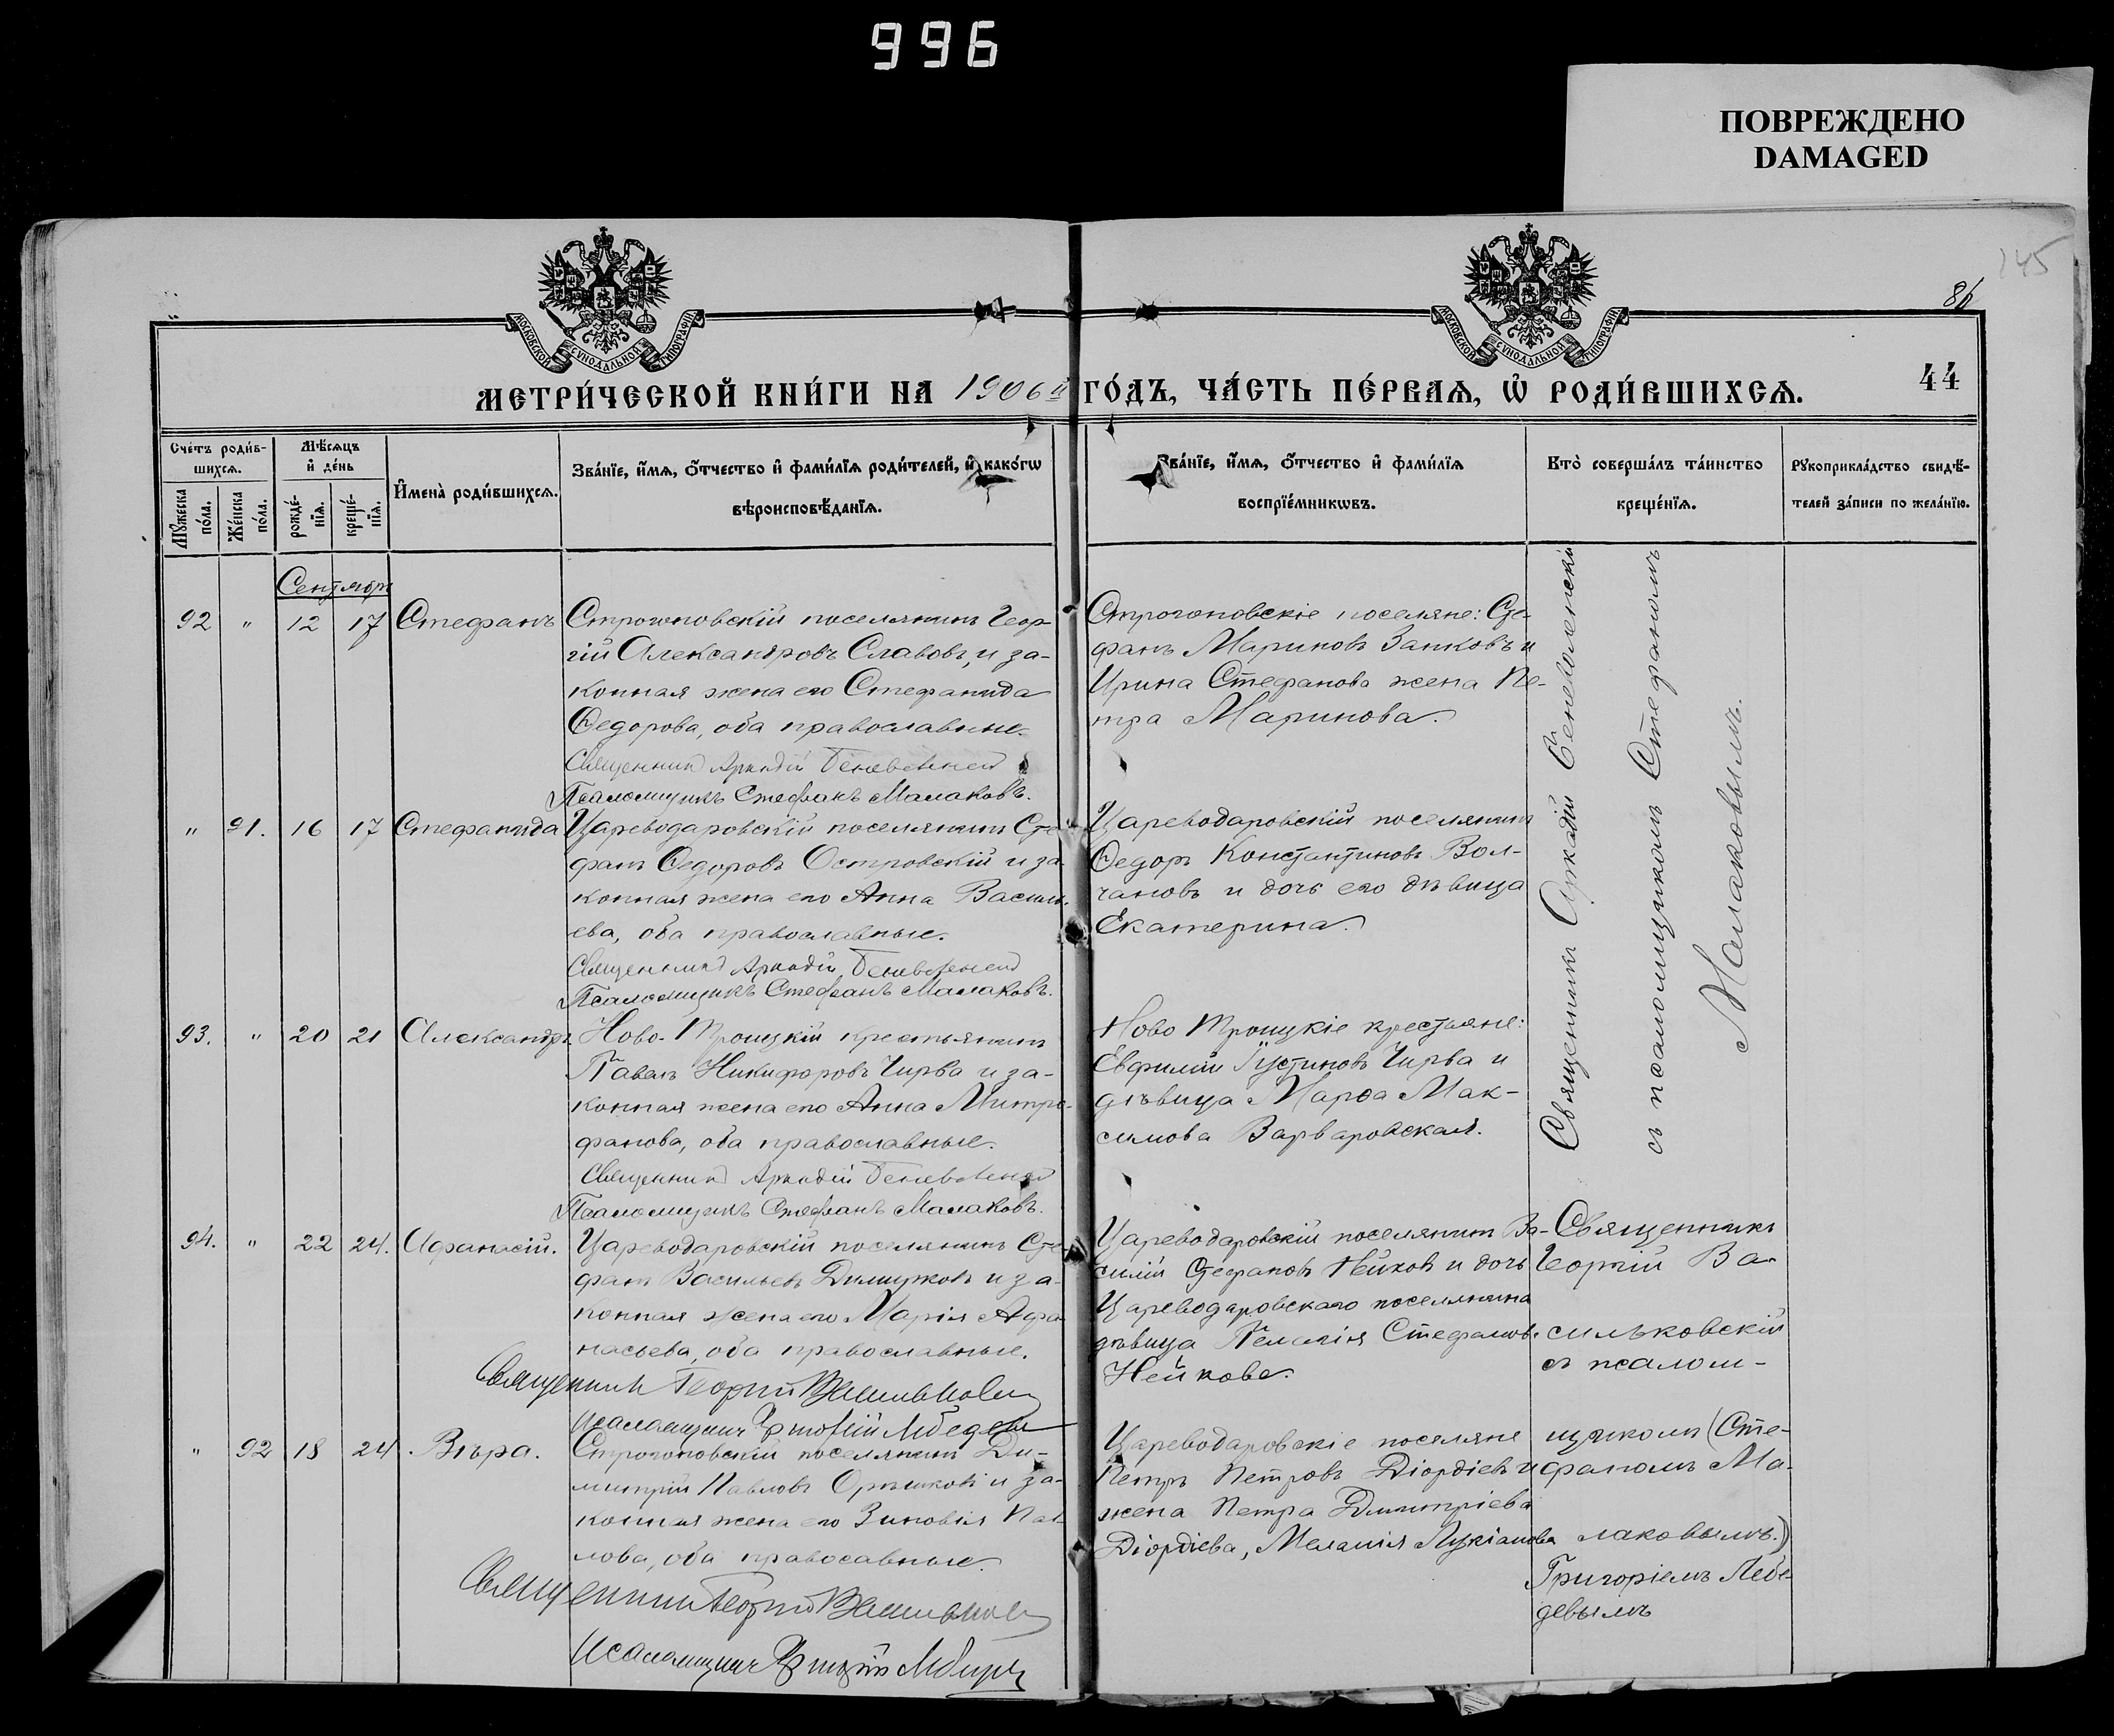 996
ПОВРЕЖДЕНО
DAMAGED
145
86
МОСКОВСКОЙ СѴНОДАЛЬНОЙ ТИПОГРАФІИ
МОСКОВСКОЙ СѴНОДАЛЬНОЙ ТИПОГРАФІИ
МЕТРИ́ЧЕСКОЙ КНИ́ГИ НА 1906й ГО́ДЪ, ЧА́СТЬ ПЕ́РВАѦ, Ѡ҆ РОДИ́ВШИХСѦ.
44
Сче́тъ роди́в-
шихсѧ.
Мꙋ́жеска
по́ла.
Же́нска
по́ла.
Мѣ́сѧцъ
и҆ де́нь
рожде́-
нїѧ.
креще́-
нїѧ.
И҆мена̀ роди́вшихсѧ.
Зва́нїе, и҆́мѧ, ѻ҆́тчество и҆ фами́лїѧ роди́телей, и҆ како́гѡ
вѣроисповѣ́данїѧ.
Зва́нїе, и҆́мѧ, ѻ҆́тчество и҆ фами́лїѧ
воспрїе́мникѡвъ.
Кто̀ соверша́лъ та́инство
креще́нїѧ.
Рꙋкоприкла́дство свидѣ́-
телей за́писи по жела́нїю.
Сентябрь
92 " 12 17 Стефанъ
Строгоновскій поселянинъ Геор-
гій Александровъ Славовъ, и за-
конная жена его Стефанида
Ѳедорова, оба православные.
Священникъ Аркадій Беневоленскій
Псаломщикъ Стефанъ Малаковъ.
Строгоновскіе поселяне: Сте-
фанъ Мариновъ Занковъ и
Ирина Стефанова жена Пе-
тра Маринова.
Священникъ Аркадій Беневоленскій
съ псаломщикомъ Стефаномъ
Малаковымъ.
" 91. 16 17 Стефанида
Цареводаровскій поселянинъ Сте-
фанъ Ѳедоровъ Островскій и за-
конная жена его Анна Василь-
ева, оба православные.
Священникъ Аркадій Беневоленскій
Псаломщикъ Стефанъ Малаковъ.
Цареводаровскій поселянинъ
Ѳедоръ Константиновъ Вол-
чановъ и дочь его дѣвица
Екатерина.
93. " 20 21 Александръ
Ново-Троицкій крестьянинъ
Павелъ Никифоровъ Чирва и за-
конная жена его Анна Митро-
фанова, оба православные.
Священникъ Аркадій Беневоленскій
Псаломщикъ Стефанъ Малаковъ.
Ново Троицкіе крестьяне:
Евфимій Іустиновъ Чирва и
дѣвица Марѳа Мак-
симова Варваровская.
94. " 22 24. Афанасій.
Цареводаровскій поселянинъ Сте-
фанъ Васильевъ Димчуковъ и за-
конная жена его Марія Афа-
насьева, оба православные.
Священникъ Георгій Васильковскій
Псаломщикъ Григорій Лебедевъ
Цареводаровскій поселянинъ Ва-
силій Стефановъ Нейковъ и дочь
Цареводаровскаго поселянина
дѣвица Пелагія Стефанова
Нейкова.
Священникъ
Георгій Ва-
сильковскій
съ псалом-
щикомъ (Сте-
фаномъ Ма-
лаковымъ.)
Григоріемъ Лебе-
девымъ
" 92 18 24 Вѣра.
Строгоновскій поселянинъ Ди-
митрій Павловъ Орѣшковъ и за-
конная жена его Зиновія Пав-
лова, оба правосавные.
Священникъ Георгій Васильковскій
Псаломщикъ Григорій Лебедевъ
Цареводаровскіе поселяне
Петръ Петровъ Діордіевъ и
жена Петра Димитріева
Діордіева, Меланія Лукіанова